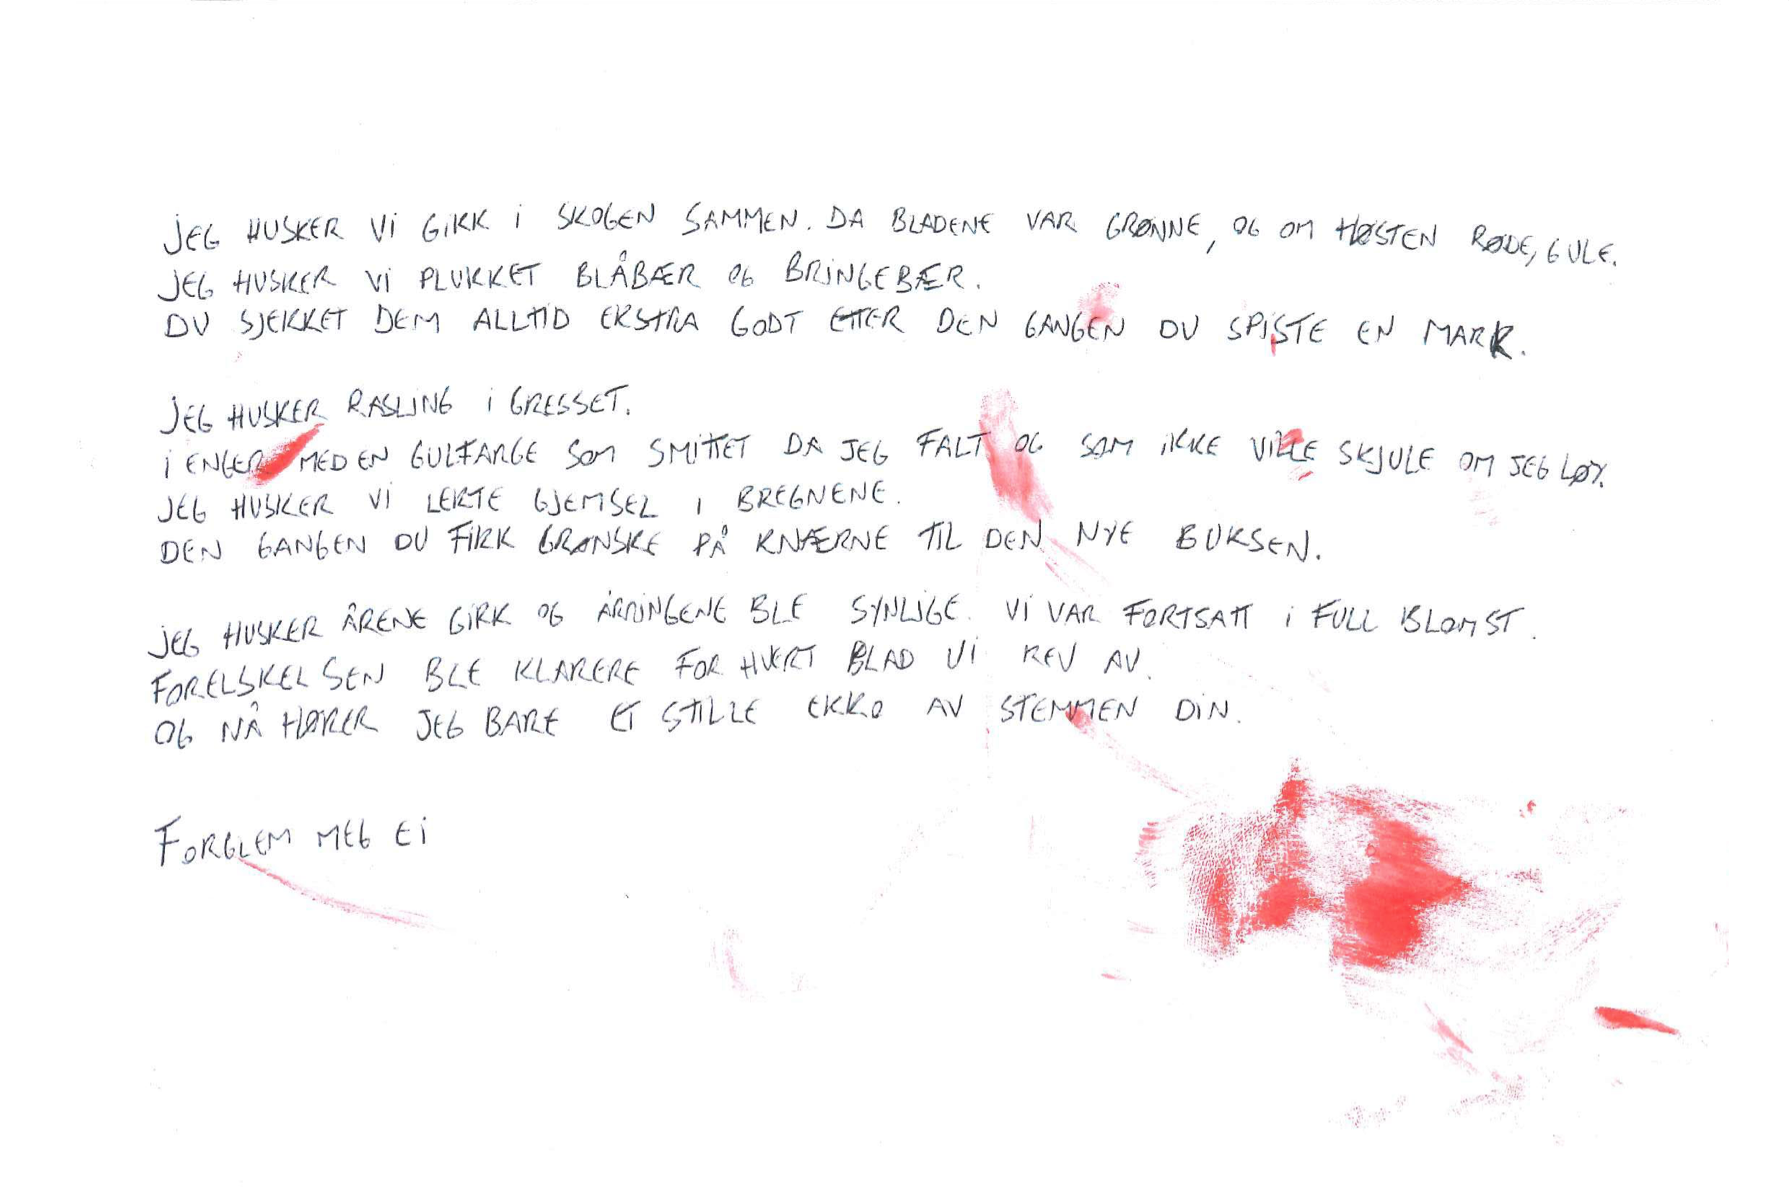 JEG HUSKER VI GIKK I SKOGEN SAMMEN. DA BLADENE VAR GRØNNE, OG OM HØSTEN RØDE, GULE.
JEG HUSKER VI PLUKKET BLÅBÆR OG BRINGEBÆR.
DU SJEKKET DEM ALLTID EKSTRA GODT ETTER DEN GANGEN DU SPISTE EN MARK.
JEG HUSKER RASLING I GRESSET.
I ENGER MED EN GULFARGE SOM SMITTET DA JEG FALT OG SOM IKKE VILLE SKJULE OM JEG LØY.
JEG HUSKER VI LEKTE GJEMSEL I BREGNENE.
DEN GANGEN DU FIKK GRØNSKE PÅ KNÆRNE TIL DEN NYE BUKSEN.
JEG HUSKER ÅRENE GIKK OG ÅRRINGENE BLE SYNLIGE. VI VAR FORTSATT I FULL BLOMST.
FORELSKELSEN BLE KLARERE FOR HVERT BLAD VI REV AV.
OG NÅ HØRER JEG BARE ET STILLE EKKO AV STEMMEN DIN.
FORGLEM MEG EI